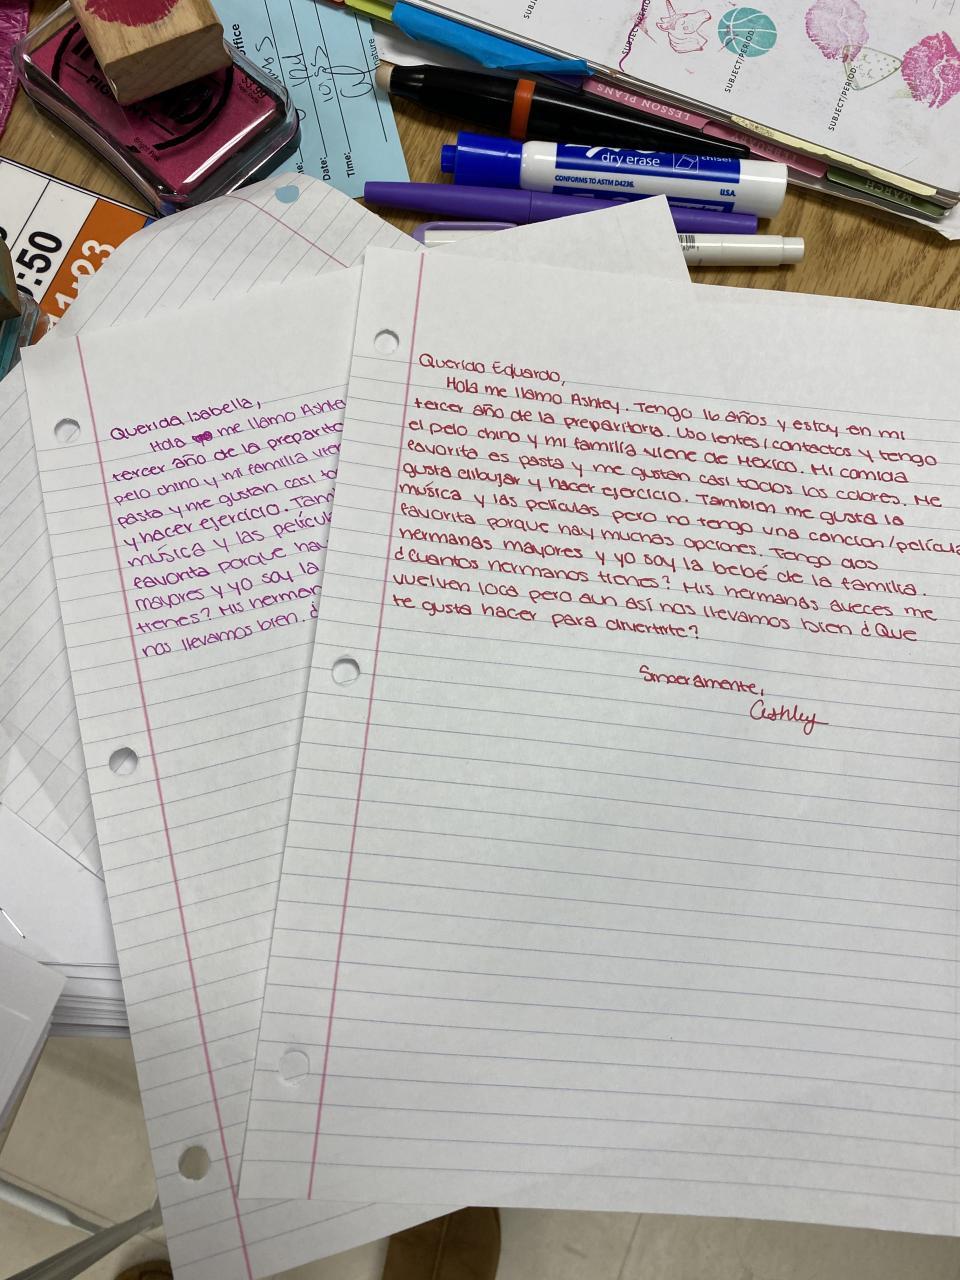 Querido Eduardo,
Hola me llamo Ashley. Tengo 16 años y estoy en mi
tercer año de la preparitoria. Uso lentes/contactos y tengo
el pelo chino y mi familia viene de México. Mi comida
favorita es pasta y me gustan casi todos los colores. Me
gusta dibujar y hacer ejercicio. Tambien me gusta la
música y las películas pero no tengo una cancion/película
favorita porque hay muchas opciones. Tengo dos
hermanas mayores y yo soy la bebé de la familia.
¿Cuantos hermanos tienes? Mis hermanas aveces me
vuelven loca pero aun así nos llevamos bien ¿Que
te gusta hacer para divertirte?
Sinceramente,
Ashley
Querida Isabella,
Hola me llamo Ashley
tercer año de la preparito
pelo chino y mi familia vie
pasta y me gustan casi to
y hacer ejercicio. Tam
música y las películ
favorita porque ha
mayores y yo soy la
tienes? Mis herman
nos llevamos bien. ¿
dry erase
chisel
CONFORMS TO ASTM D4236.
U.S.A.
LESSON PLANS
SUBJECT/PERIOD:
SUBJECT/PERIOD:
SUBJECT/PERIOD:
SUBJECT/PERIOD:
office
Date:
Time:
:50
11:23
Bright Pink